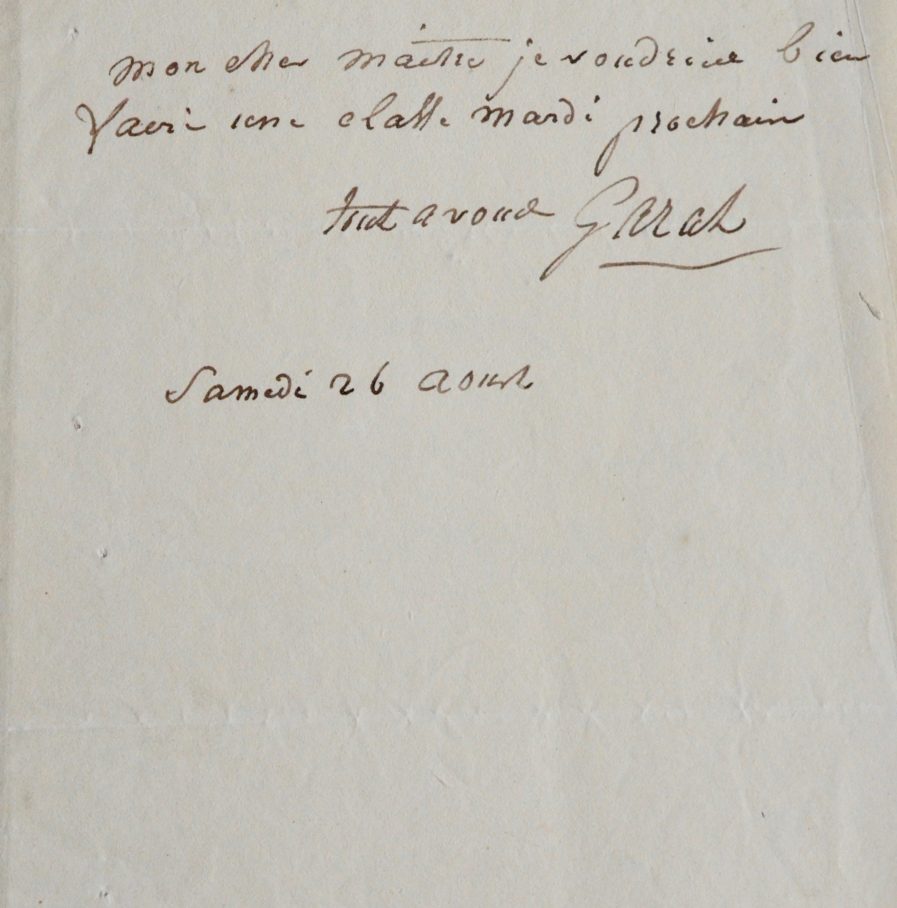 mon cher maitre je voudrais bien
savoir une classe mardi prochain
tout a vous Garat
Samedi 26 aoust